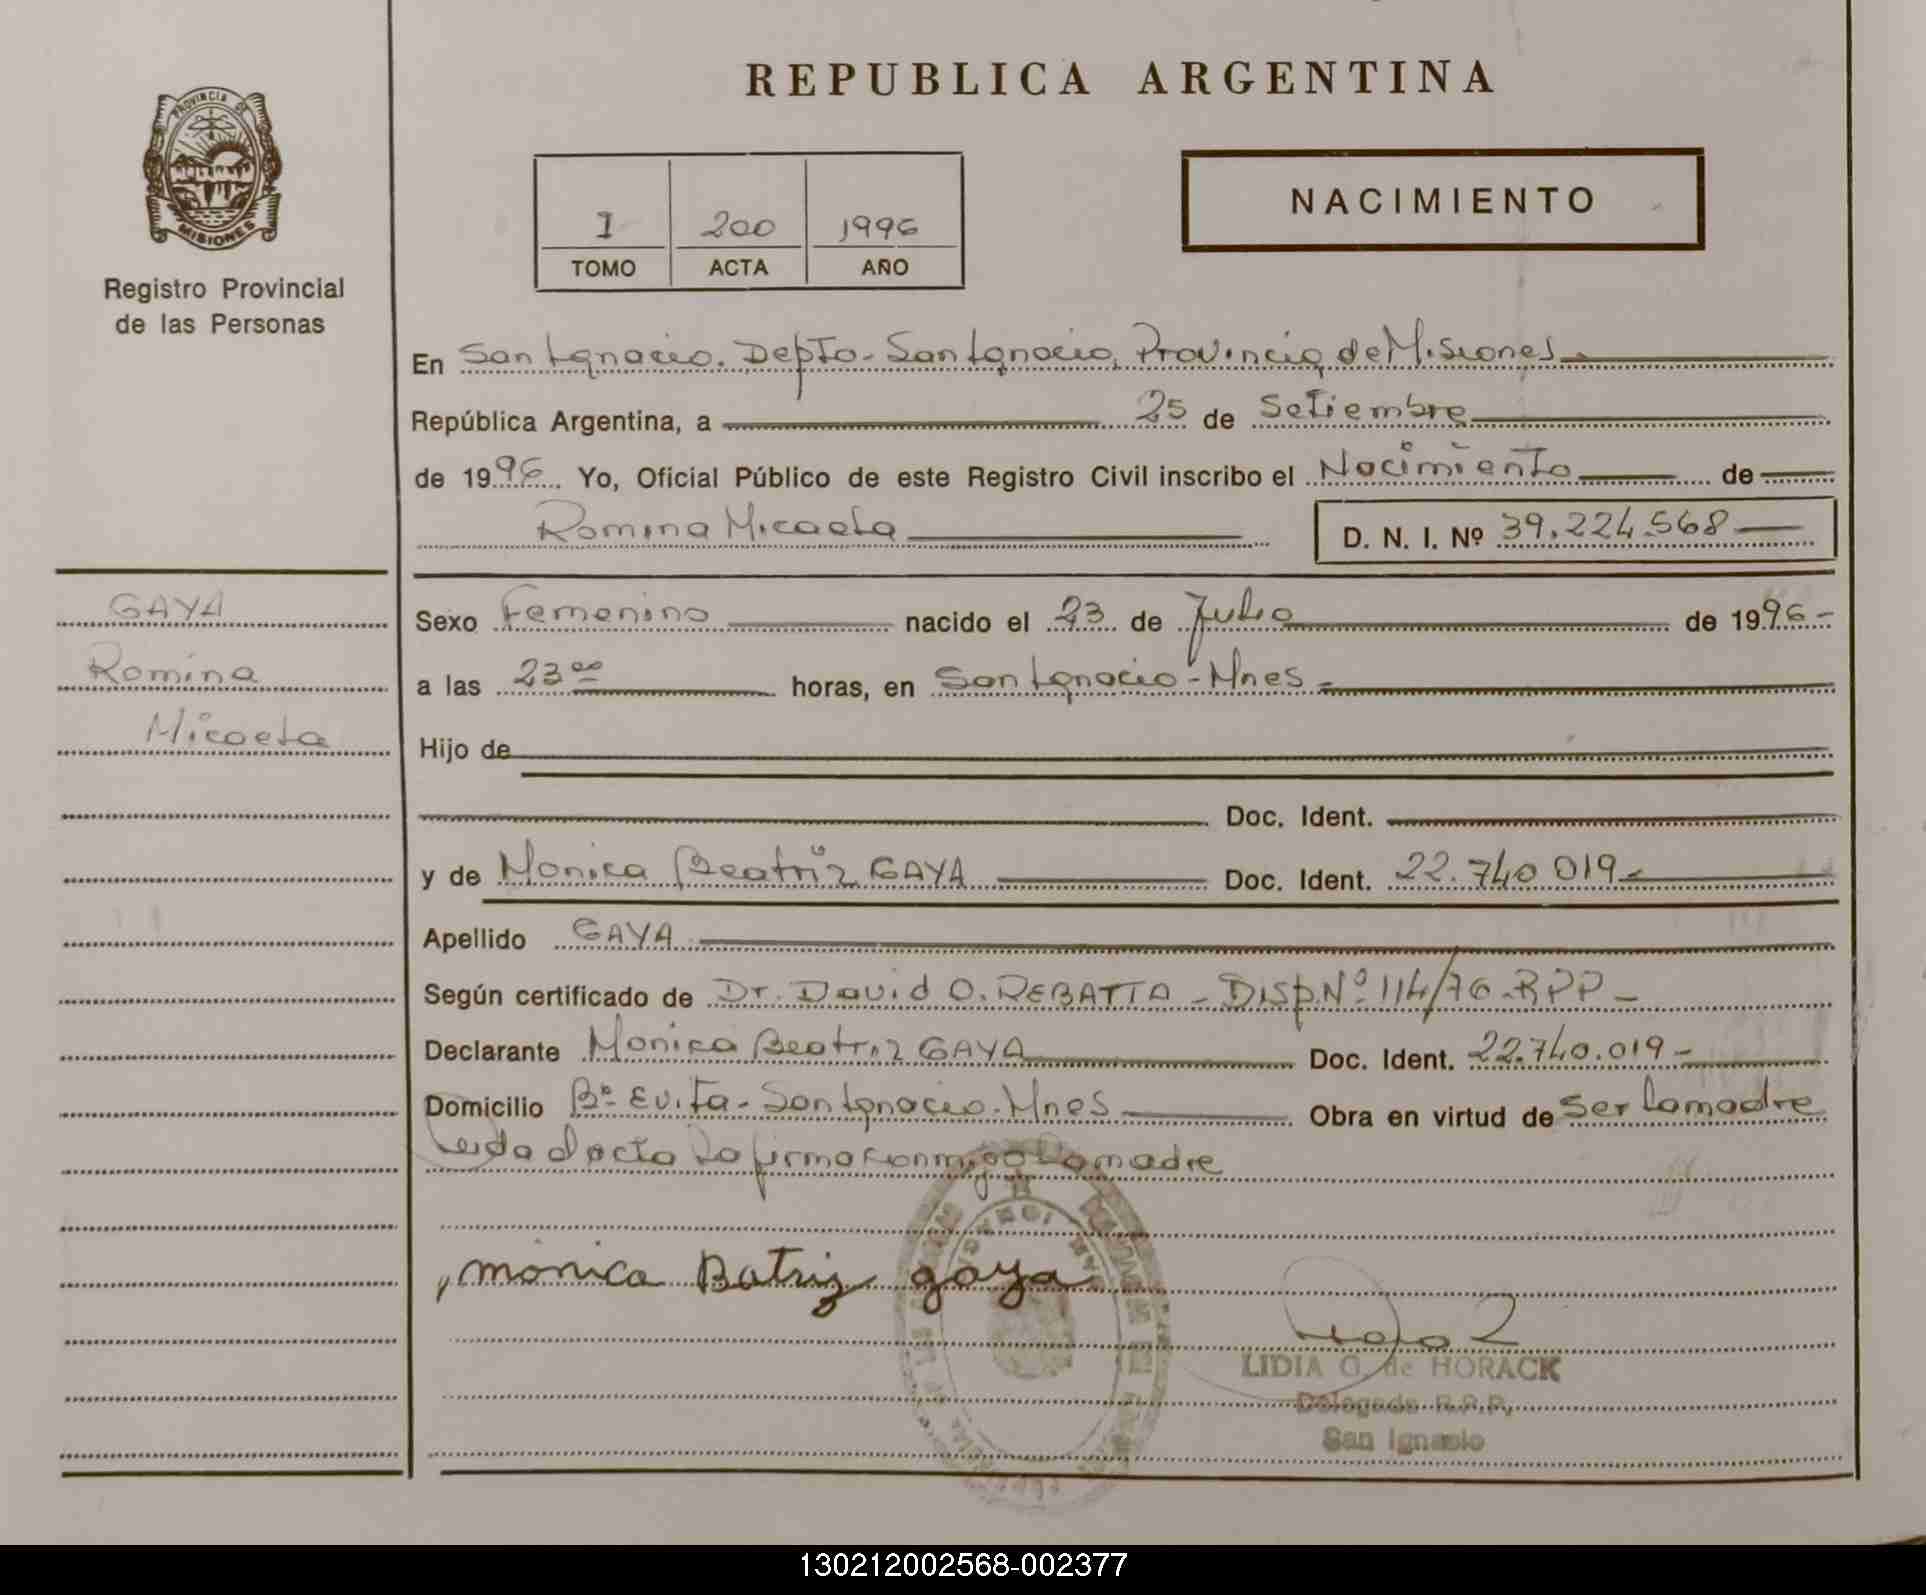 REPUBLICA ARGENTINA
PROVINCIA DE
MISIONES
Registro Provincial
de las Personas
1 200 1996
TOMO ACTA AÑO
NACIMIENTO
En San Ignacio. Depto. San Ignacio, Provincia de Misiones
República Argentina, a 25 de Setiembre
de 1996. Yo, Oficial Público de este Registro Civil inscribo el Nacimiento de
Romina Micaela D. N. I. Nº 39.224.568
GAYA
Romina
Micaela
Sexo Femenino nacido el 23 de Julio de 1996-
a las 23⁰⁰ horas, en San Ignacio - Mnes -
Hijo de
Doc. Ident.
y de Monica Beatriz GAYA Doc. Ident. 22.740.019-
Apellido GAYA
Según certificado de Dr. David O. REBATTA - DISP. Nº 114/76-RPP-
Declarante Monica Beatriz GAYA Doc. Ident. 22.740.019-
Domicilio Bº Evita - San Ignacio - Mnes Obra en virtud de ser la madre
Leida el acta la firma conmigo la madre
monica Batriz gaya
LIDIA G. de HORACK
Delegada R.P.P.
San Ignacio
130212002568-002377